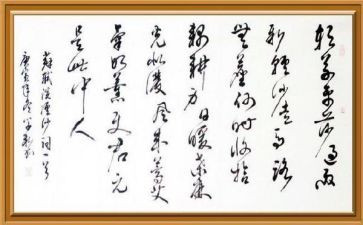 軟草平莎過雨
新輕沙走馬路
無塵何時收拾
耦耕身日暖桑麻
光似潑風來蒿艾
氣如薰使君元
是此中人
蘇軾浣溪沙詞一首
庚寅年冬